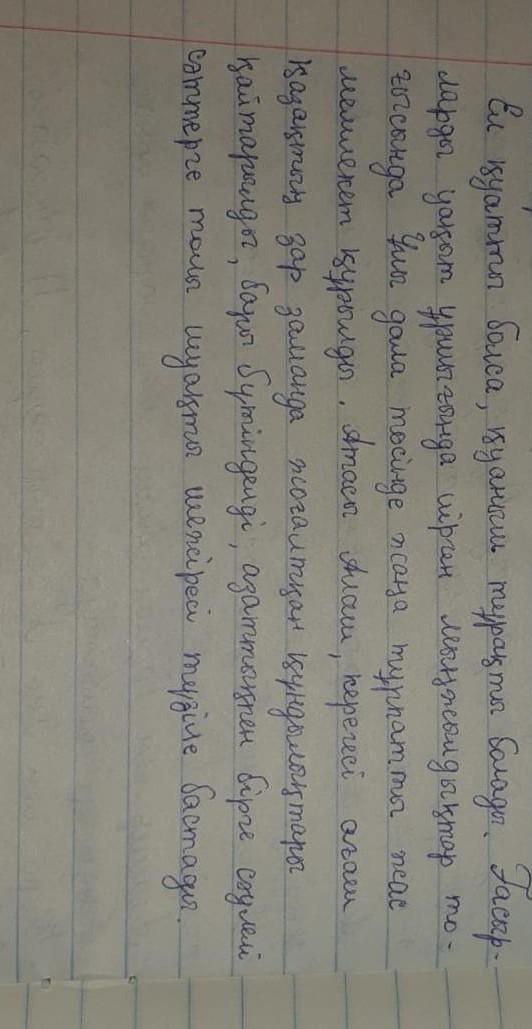 Ел қуатты болса, қуаныш тұрақты болады. Ғасыр-
ларды уақыт ұршығында иірген мыңжылдықтар то-
ғысында Ұлы дала төсінде жаңа тұрпатты жас
мемлекет құрылды. Атасы Алаш, керегесі ағаш
Қазақтың зар заманда жоғалтқан құндылықтары
қайтарылды, бары бүтінделді, азаттықпен бірге сәулелі
сәттерге толы шуақты шежіресі түзіле бастады.